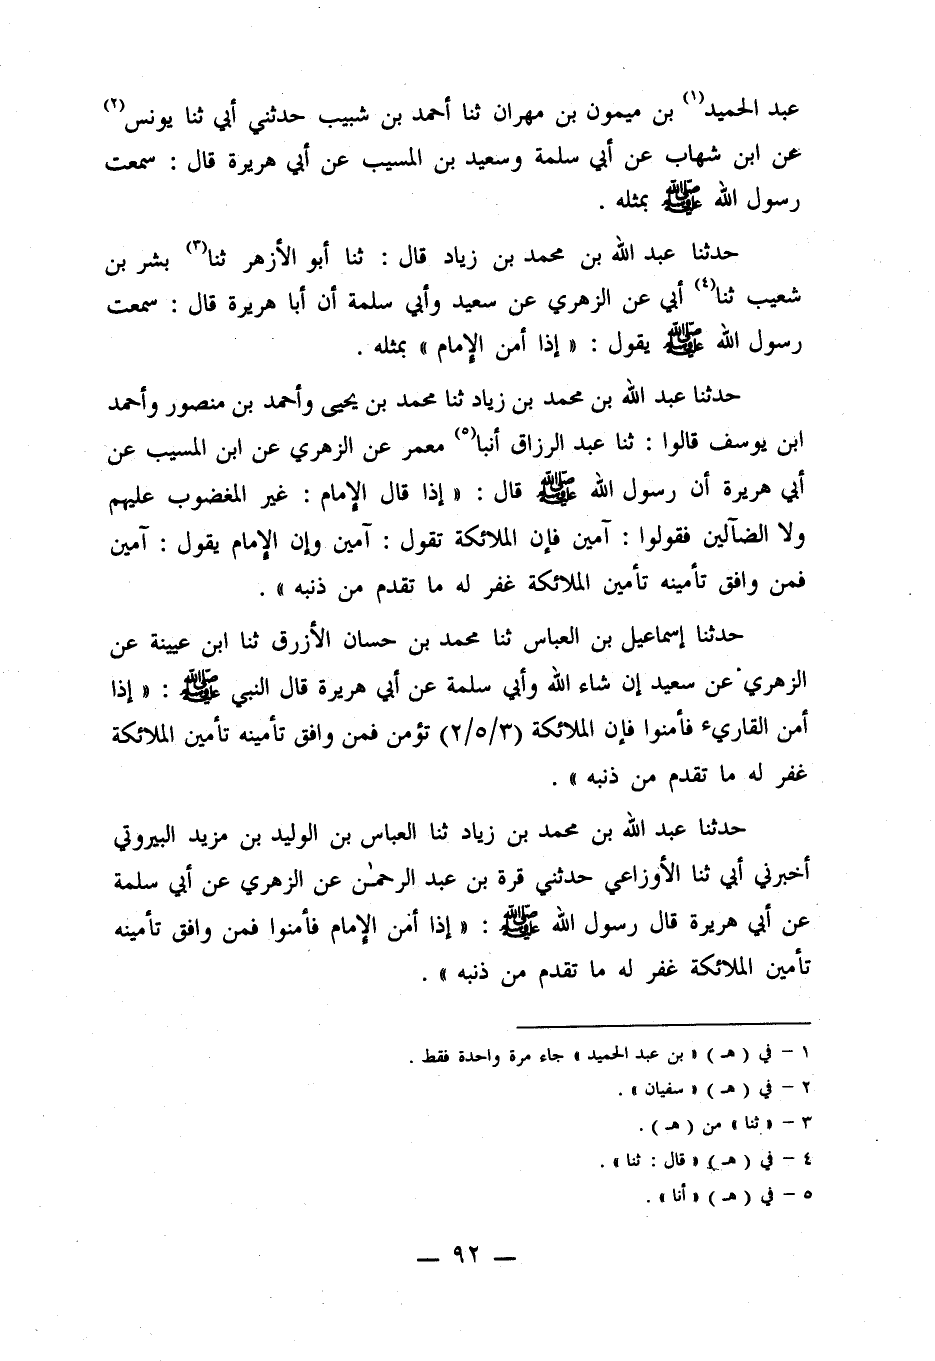 عبد الحميد(١) بن ميمون بن مهران ثنا أحمد بن شبيب حدثني أبي ثنا يونس(٢)
عن ابن شهاب عن أبي سلمة وسعيد بن المسيب عن أبي هريرة قال : سمعت
رسول الله ﷺ بمثله .
حدثنا عبد الله بن محمد بن زياد قال : ثنا أبو الأزهر ثنا(٣) بشر بن
شعيب ثنا(٤) أبي عن الزهري عن سعيد وأبي سلمة أن أبا هريرة قال : سمعت
رسول الله ﷺ يقول : « إذا أمن الإمام » بمثله .
حدثنا عبد الله بن محمد بن زياد ثنا محمد بن يحيى وأحمد بن منصور وأحمد
ابن يوسف قالوا : ثنا عبد الرزاق أنبا(٥) معمر عن الزهري عن ابن المسيب عن
أبي هريرة أن رسول الله ﷺ قال : « إذا قال الإمام : غير المغضوب عليهم
ولا الضآلين فقولوا : آمين فإن الملائكة تقول : آمين وإن الإمام يقول : آمين
فمن وافق تأمينه تأمين الملائكة غفر له ما تقدم من ذنبه » .
حدثنا إسماعيل بن العباس ثنا محمد بن حسان الأزرق ثنا ابن عيينة عن
الزهري عن سعيد إن شاء الله وأبي سلمة عن أبي هريرة قال النبي ﷺ : « إذا
أمن القاريء فأمنوا فإن الملائكة (٢/٥/٣) تؤمن فمن وافق تأمينه تأمين الملائكة
غفر له ما تقدم من ذنبه » .
حدثنا عبد الله بن محمد بن زياد ثنا العباس بن الوليد بن مزيد البيروتي
أخبرني أبي ثنا الأوزاعي حدثني قرة بن عبد الرحمٰن عن الزهري عن أبي سلمة
عن أبي هريرة قال رسول الله ﷺ : « إذا أمن الإمام فأمنوا فمن وافق تأمينه
تأمين الملائكة غفر له ما تقدم من ذنبه » .
١ – في ( هـ ) « بن عبد الحميد » جاء مرة واحدة فقط .
٢ – في ( هـ ) « سفيان » .
٣ – « ثنا » من ( هـ ) .
٤ – في ( هـ ) « قال : ثنا » .
٥ – في ( هـ ) « أنا » .
— ٩٢ —